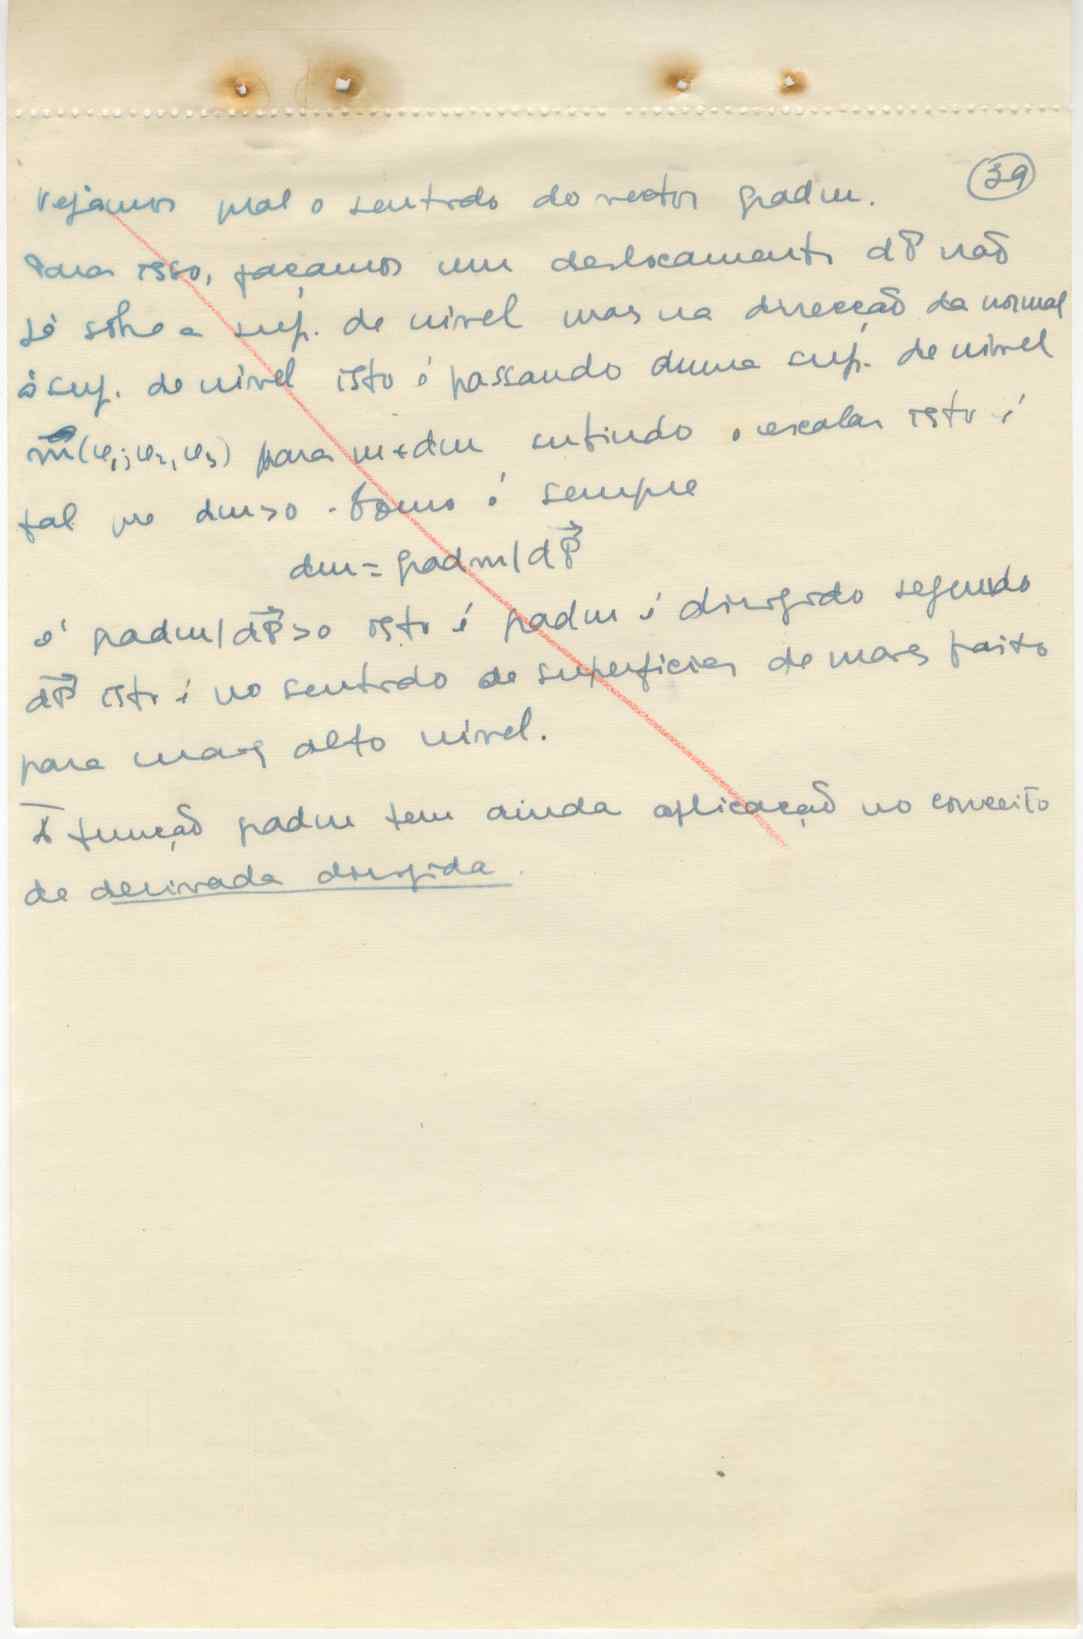 39
Vejamos qual o sentido do vector grad m.
Para isso, façamos um deslocamento dP não
só sôbre a sup. de nivel mas na direcção da normal
à sup. de nivel isto é passando duma sup. de nivel
m(φ₁, φ₂, φ₃) para m+dm subindo o escalar isto é
tal que dm>0. Como é sempre
dm = grad m | dP⃗
é grad m | dP⃗ > 0 isto é grad m é dirigido segundo
dP⃗ isto é no sentido de superficies de mais baixo
para mais alto nivel.
A função grad m tem ainda aplicação no conceito
de derivada dirigida.